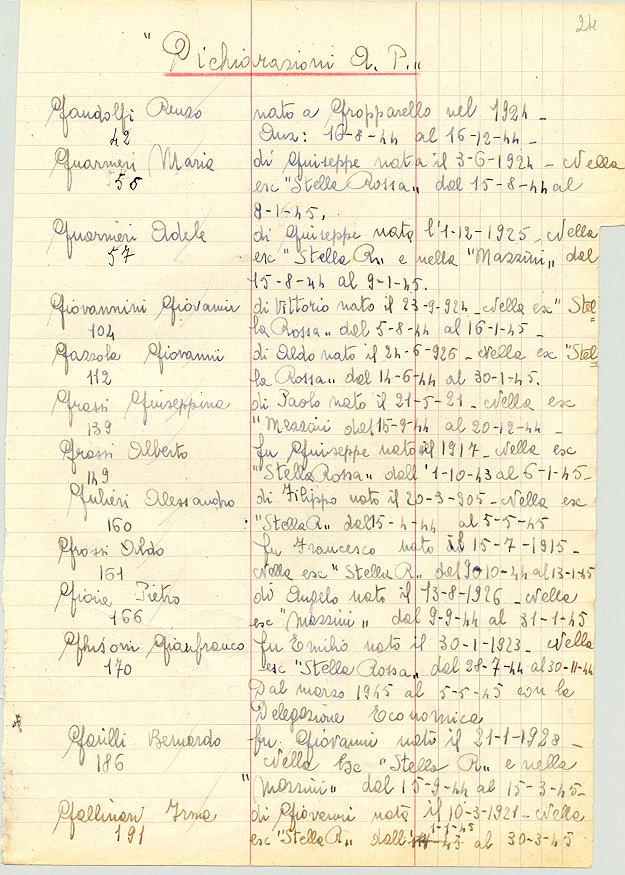 24
"Dichiarazioni A. P."
Gandolfi Renzo nato a Gropparello nel 1924 -
42 Anz: 16-8-44 al 16-12-44 -
Guarnieri Maria di Giuseppe nata il 3-6-1924 - Nella
55 esc "Stella Rossa" dal 15-8-44 al
8-1-45.
Guarnieri Adele di Giuseppe nata l'1-12-1925 - Nella
57 esc "Stella R" e nella "Mazzini" dal
15-8-44 al 9-1-45.
Giovannini Giovanni di Vittorio nato il 23-9-924 - Nella esc "Stel=
104 la Rossa" dal 5-8-44 al 16-1-45 -
Gazzola Giovanni di Aldo nato il 24-6-926 - Nella esc "Stel=
112 la Rossa" dal 14-6-44 al 30-1-45.
Grassi Giuseppina di Paolo nato il 21-5-21 - Nella esc
139 "Mazzini dal 15-9-44 al 20-12-44 -
Grassi Alberto fu Giuseppe nato il 1917 - Nella esc
149 "Stella Rossa" dall'1-10-43 al 6-1-45 -
Gulieri Alessandro di Filippo nato il 20-3-905 - Nella esc
160 "Stella R" dal 15-4-44 al 5-5-45
Grossi Aldo fu Francesco nato il 15-7-1915 -
161 Nella esc "Stella R" dal 10-44 al 13-1-45
Gioia Pietro di Angelo nato il 13-8-1926 - Nella
166 esc "Mazzini" dal 9-9-44 al 31-1-45
Ghisoni Gianfranco fu Emilio nato il 30-1-1923 - Nella
170 esc "Stella Rossa" dal 28-7-44 al 30-11-44
Dal marzo 1945 al 5-5-45 con la
Delegazione Economica
Garilli Bernardo fu Giovanni nato il 21-1-1928 -
186 Nella Esc "Stella R" e nella
"Mazzini" dal 15-9-44 al 15-3-45 -
Gallinari Irma di Giovanni nata il 10-3-1921 - Nella
191 esc "Stella R" dall'1-1-45 al 30-3-45